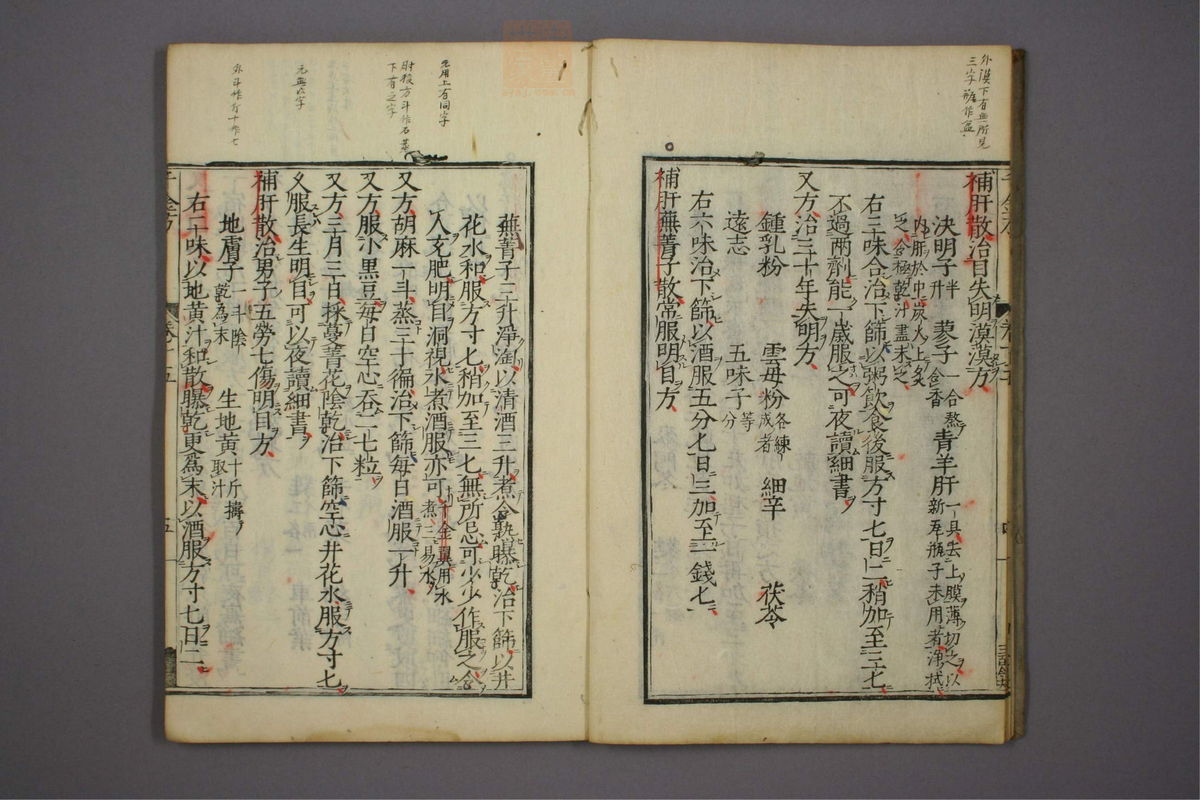 外漠下有無所見
三字
補肝散治目失明漠漠方
決明子半升 蓼子一合熬令香 青羊肝一具去上膜薄切之以新瓦瓶子未用者淨拭
内肝於中炭火上炙之令極乾汁盡末之
右三味合治下篩以粥飲食後服方寸匕日二稍加至三匕
不過兩劑能一歲服之可夜讀細書
又方治三十年失明方
鍾乳粉 雲母粉各練成者 細辛 茯苓
遠志 五味子等分
右六味治下篩以酒服五分匕日三加至一錢匕
補肝蕪菁子散常服明目方
千金方 卷十五 五
元用上有同字
肘後方斗作石蒸
下有之字
元無以字
蕪菁子三升淨淘以清酒三升煮令熟曝乾治下篩以井
花水和服方寸匕稍加至三匕無所忌可少少作服之令
人充肥明目洞視水煮酒服亦可千金翼用水煮三易水
又方胡麻一斗蒸三十徧治下篩每日酒服一升
又方服小黑豆每日空心吞二七粒
又方三月三日採蔓菁花陰乾治下篩空心井花水服方寸匕
久服長生明目可以夜讀細書
補肝散治男子五勞七傷明目方
地膚子一斗陰乾為末 生地黃十斤擣取汁
右二味以地黃汁和散曝乾更為末以酒服方寸匕日二